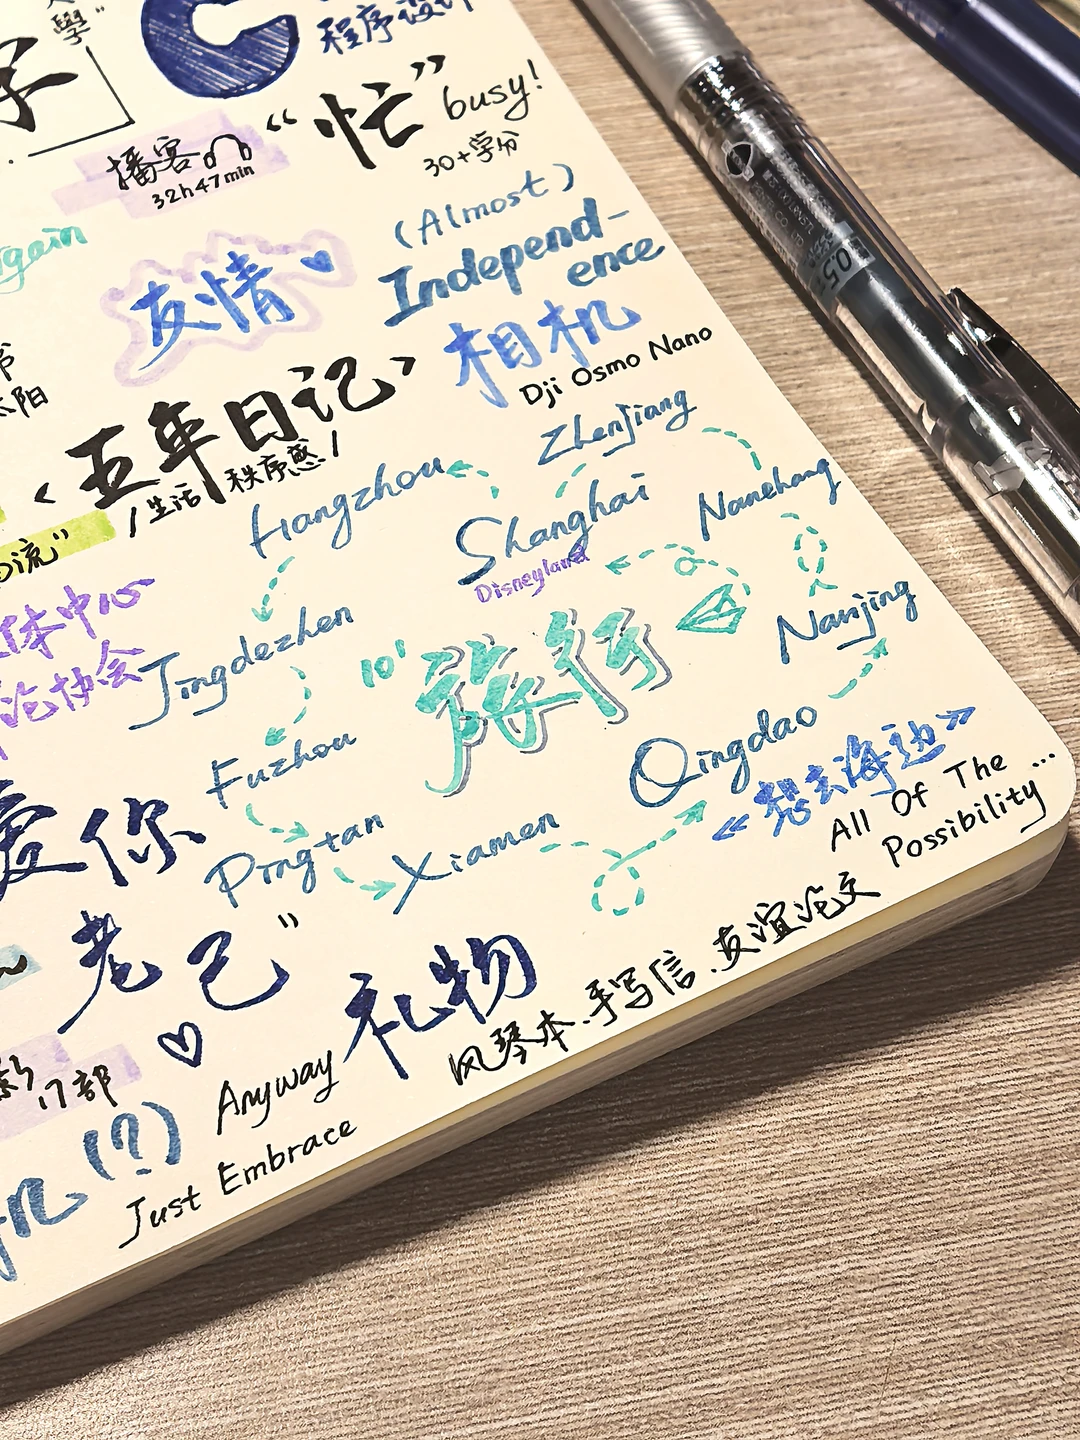 大
學"
C
程序设计
学
"忙" busy!
30+学分
播客
32h47min
again
(Almost)
Independ-
ence
友情
相机
Dji Osmo Nano
书
太阳
<五年日记>
/生活 秩序感/
Zhenjiang
Hangzhou
Shanghai
Disneyland
Nanchang
流"
体中心
论协会
Jingdezhen
Nanjing
10'
旅行
Fuzhou
Qingdao
《想去海边》
All Of The ...
Possibility
Pingtan
Xiamen
爱你
老己"
礼物
风琴本.手写信.友谊论文
17部
Anyway
Just Embrace
(?)
机
0.5